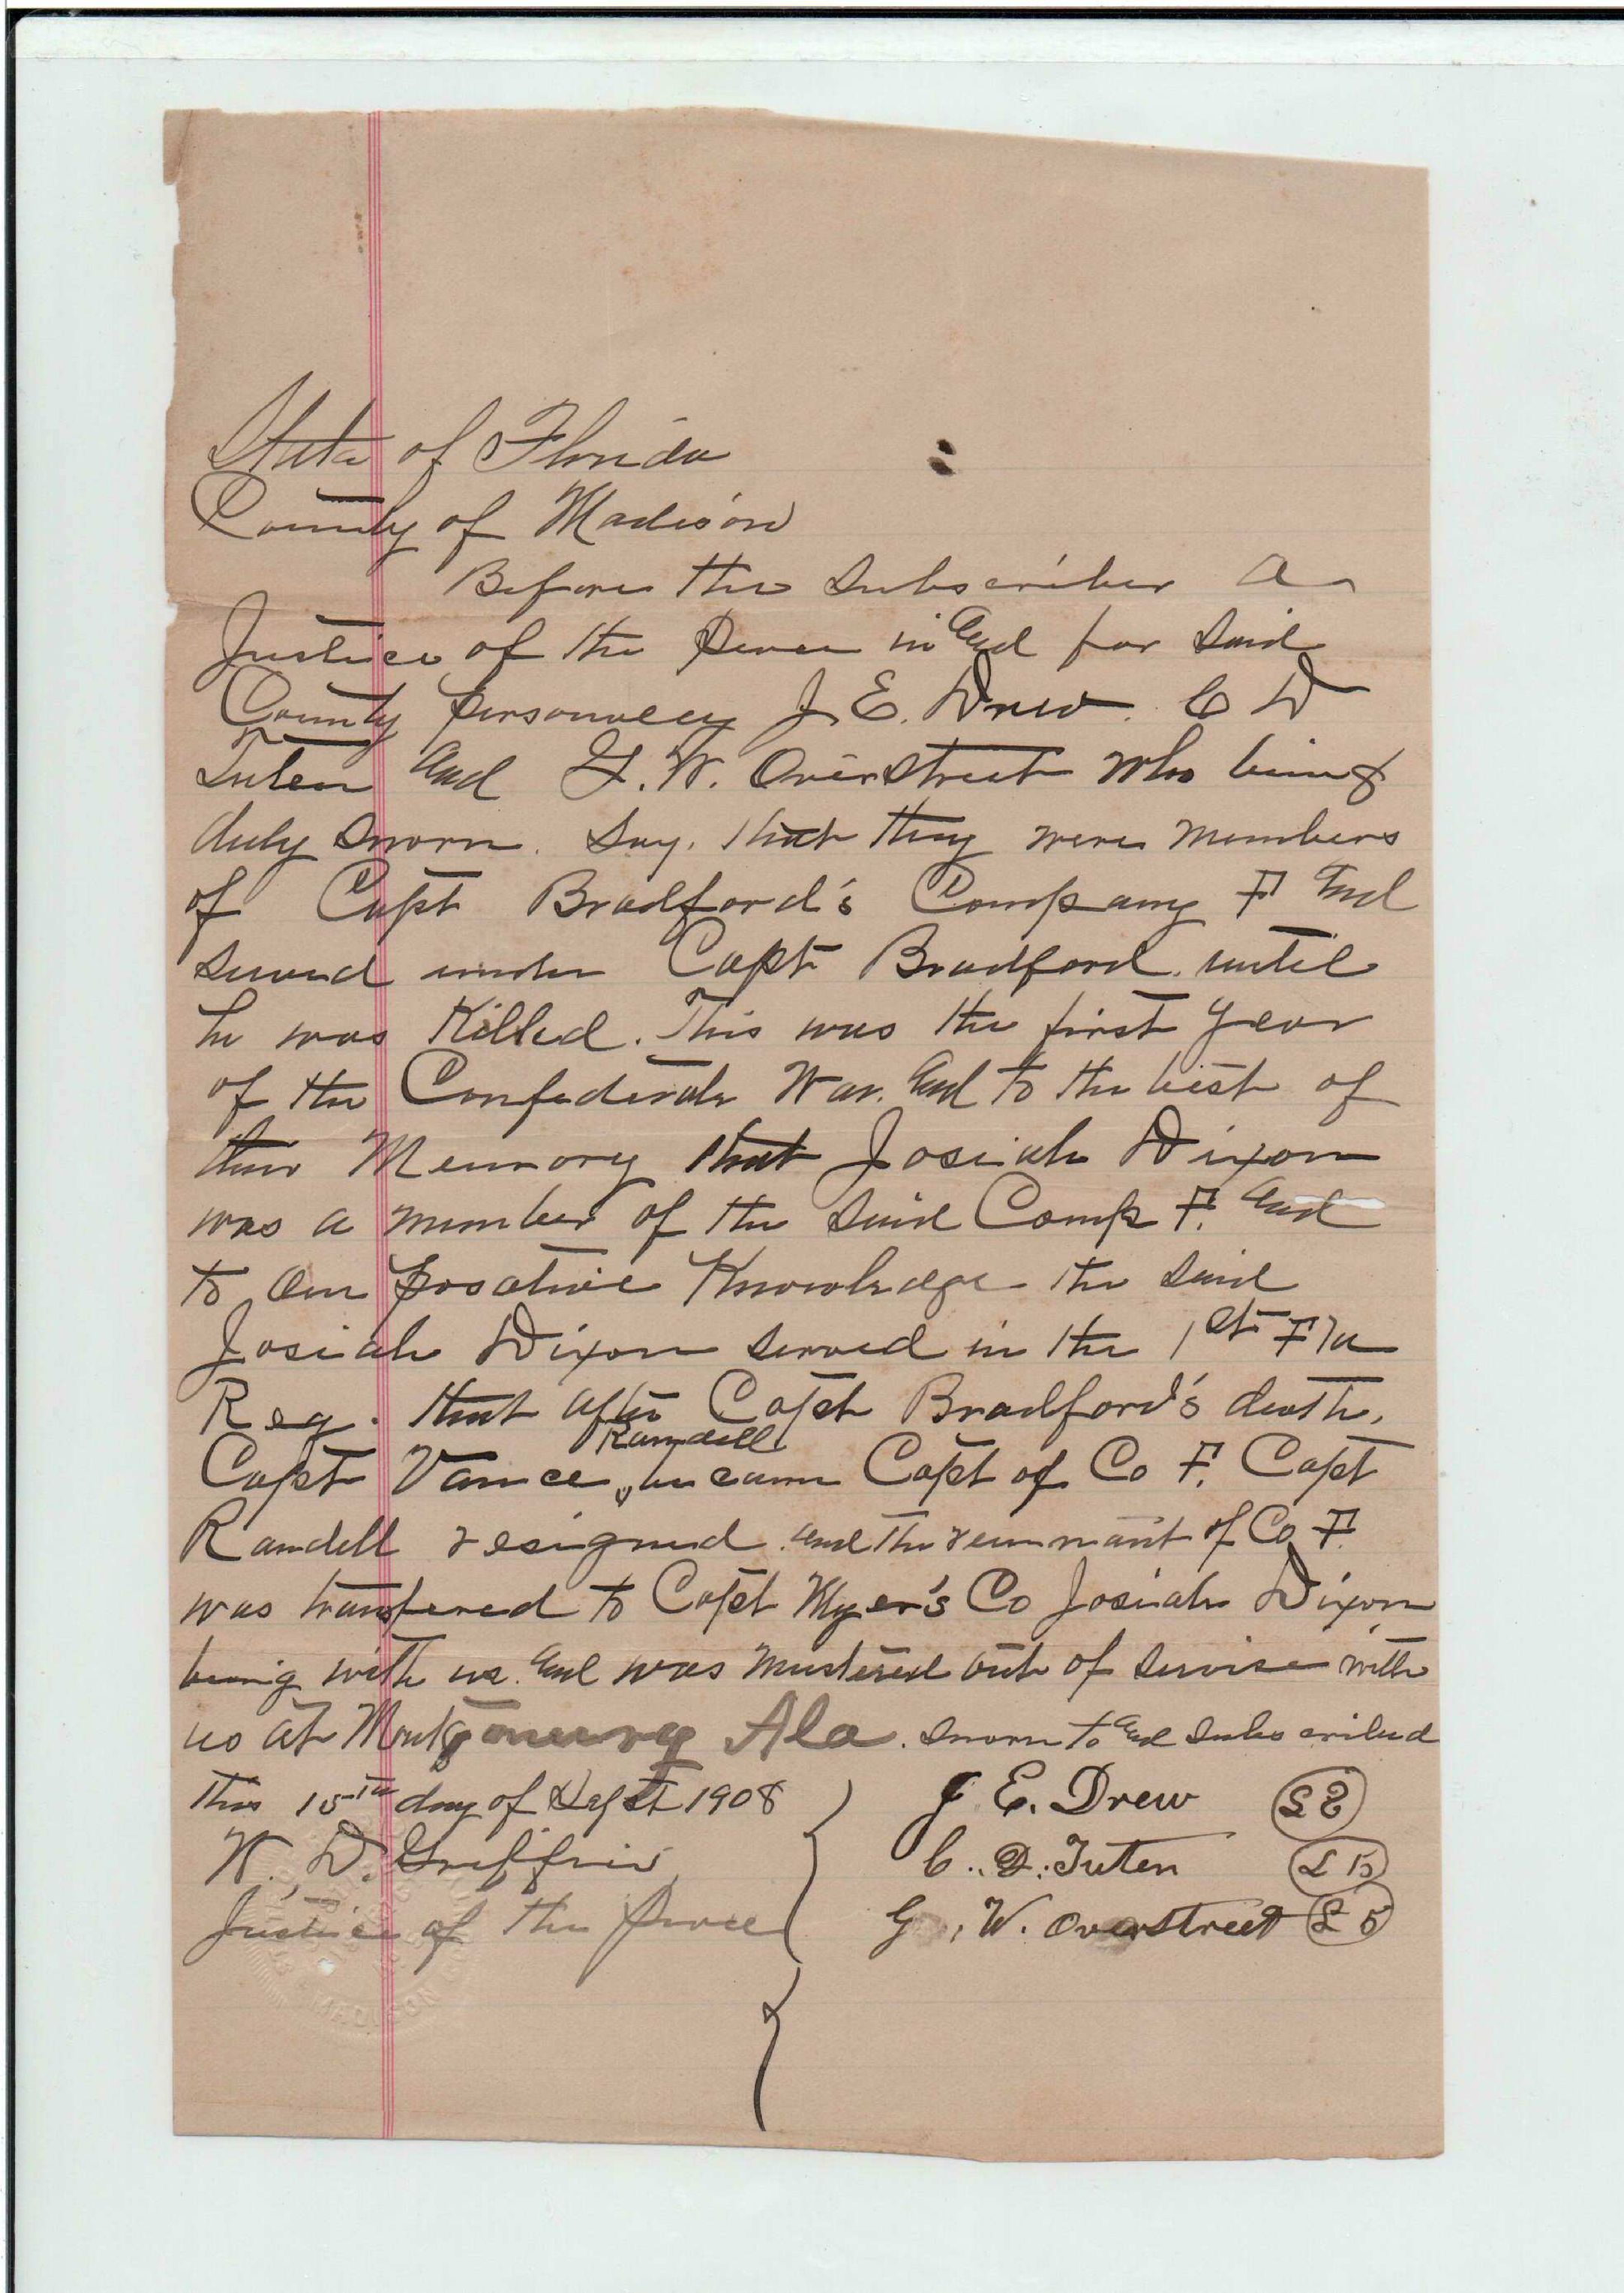 State of Florida
County of Madison
Before the Subscriber a
Justice of the peace in and for Said
County personally J. E. Drew. C D
Tuten and G. W. Overstreet who being
duly Sworn. Say. that they were members
of Capt Bradford's Company F and
served under Capt Bradford. until
he was Killed. This was the first year
of the Confederate War. and to the best of
their Memory that Josiah Dixon
was a member of the said Comp F. and
to our posative Knowledge the said
Josiah Dixon served in the 1st Fla
Reg. that after Capt Bradford's death,
Capt Vance Randell became Capt of Co F. Capt
Randell resigned and the remnant of Co F.
was transfered to Capt Myer's Co Josiah Dixon
being with us. and was mustered out of servise with
us at Montgomery Ala. Sworn to and subscribed
this 15th day of Sept 1908
J. E. Drew LS
W. D. Griffin
C. D. Tuten LS
Justice of the peace
G. W. Overstreet LS
MADISON